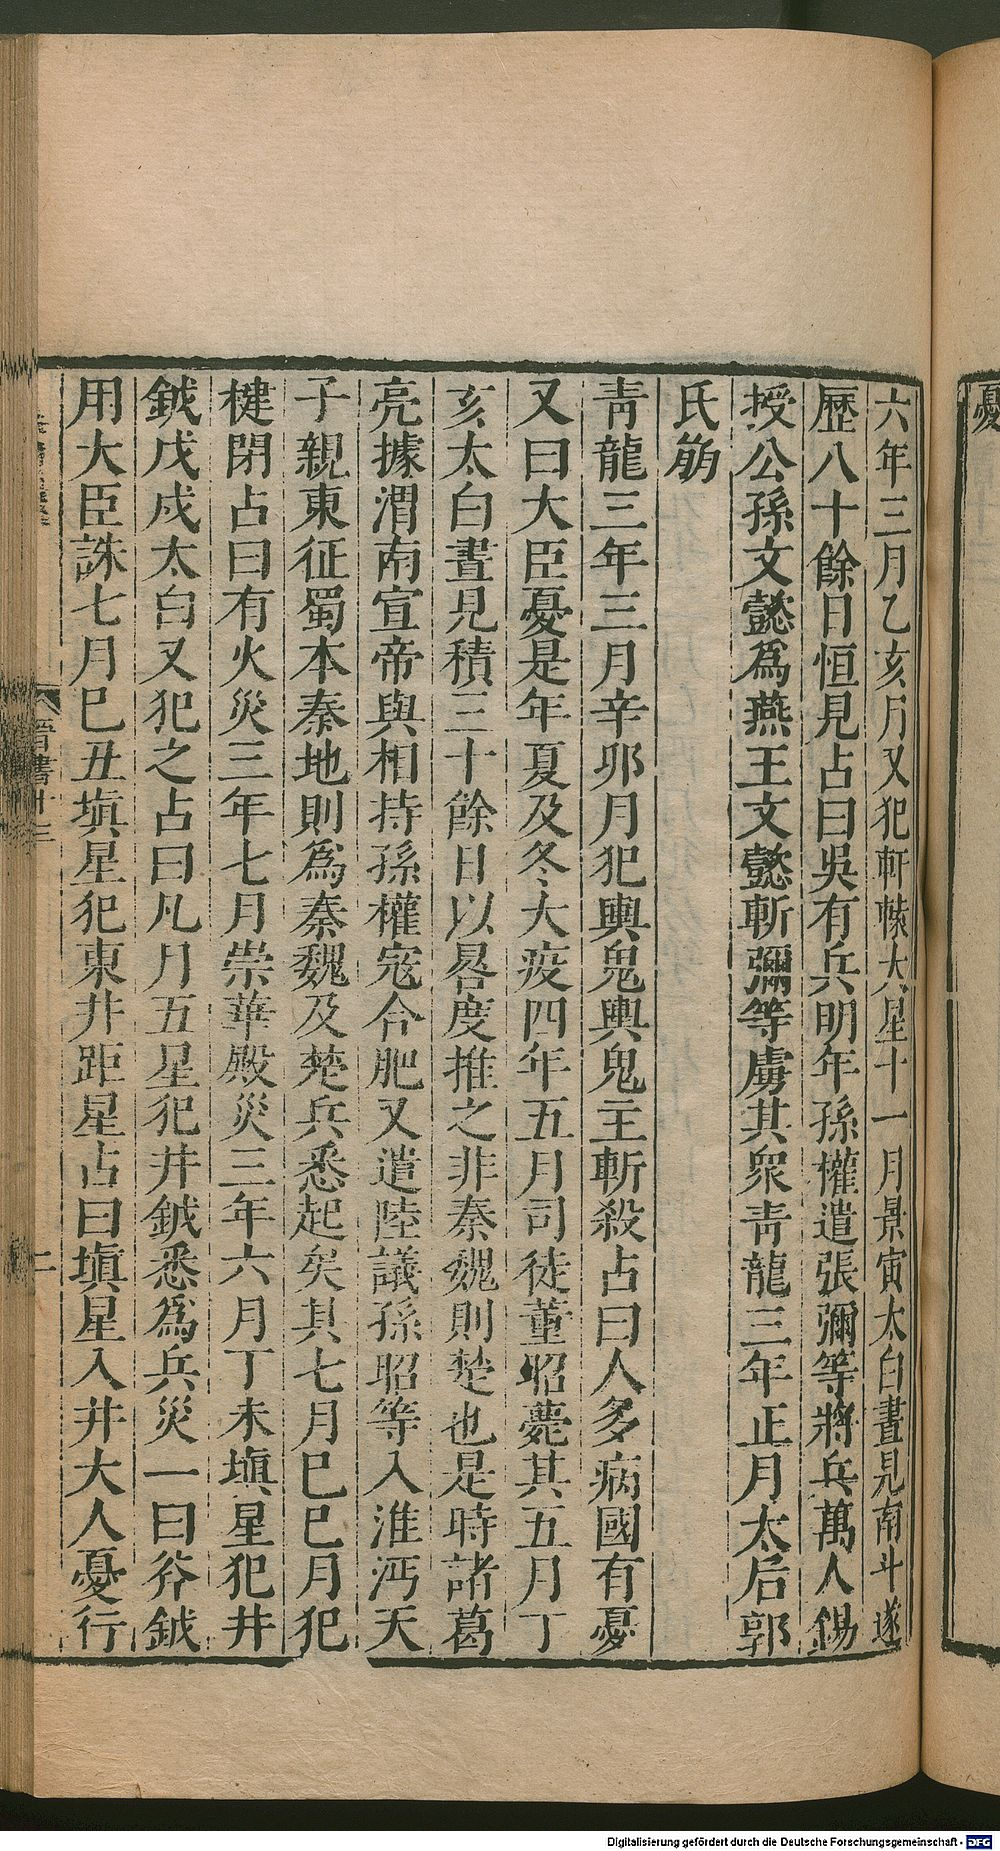 憂
六年三月乙亥月又犯軒轅大星十一月景寅太白晝見南斗遂
歷八十餘日恒見占曰吳有兵明年孫權遣張彌等將兵萬人錫
授公孫文懿爲燕王文懿斬彌等虜其衆靑龍三年正月太后郭
氏崩
靑龍三年三月辛卯月犯輿鬼輿鬼主斬殺占曰人多病國有憂
又曰大臣憂是年夏及冬大疫四年五月司徒董昭薨其五月丁
亥太白晝見積三十餘日以晷度推之非秦魏則楚也是時諸葛
亮據渭南宣帝與相持孫權寇合肥又遣陸議孫昭等入淮沔天
子親東征蜀本秦地則爲秦魏及楚兵悉起矣其七月巳巳月犯
楗閉占曰有火災三年七月崇華殿災三年六月丁未塡星犯井
鉞戊戌太白又犯之占曰凡月五星犯井鉞悉爲兵災一曰斧鉞
用大臣誅七月巳丑塡星犯東井距星占曰塡星入井大人憂行
晉書十三
二
Digitalisierung gefördert durch die Deutsche Forschungsgemeinschaft - DFG